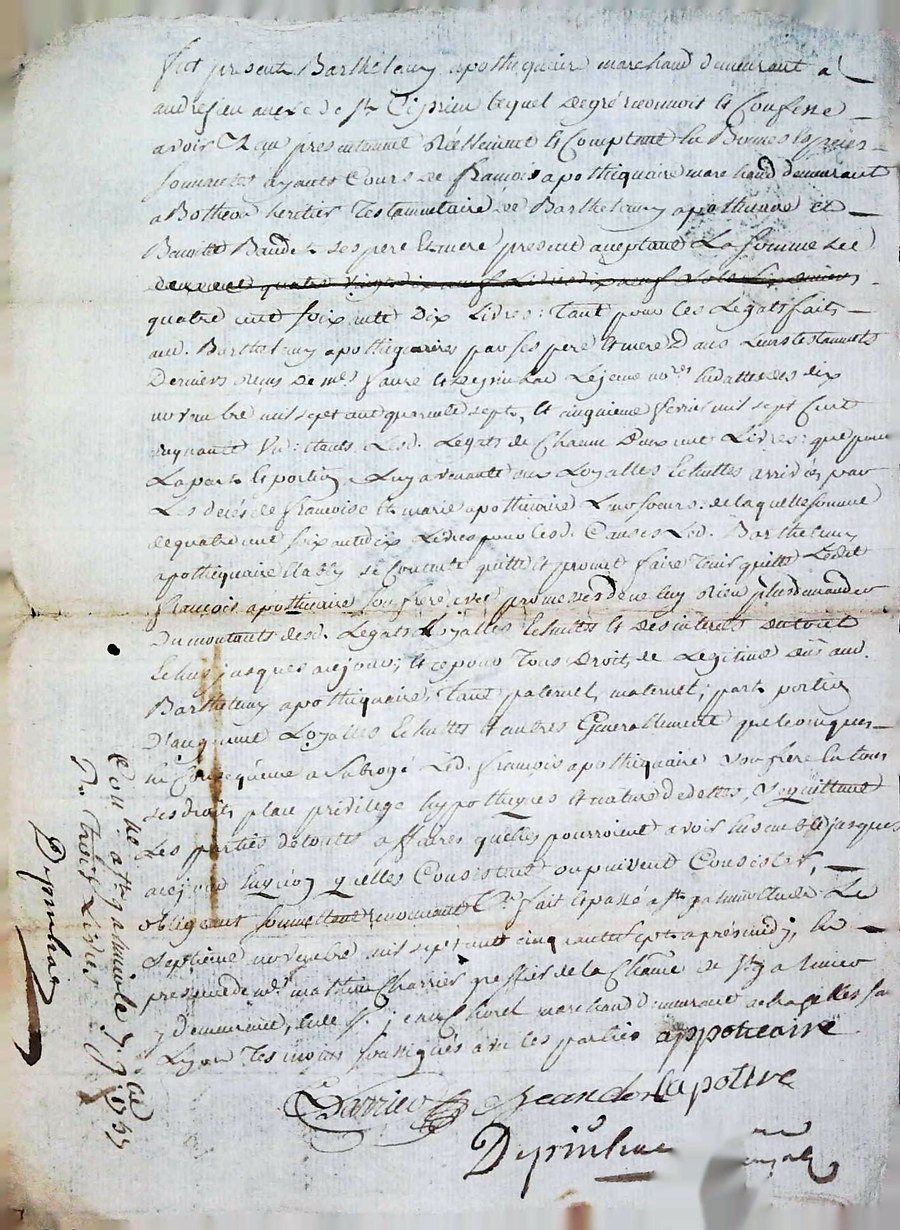 fut présent Barthelemy apothiquaire marchand demeurant a
andresieu anexe de St Ciprien lequel de gré reconnoit et Confesse
avoir Reçu présentement réellement et Comptant en Bonnes espèces
sonnantes ayants Cours de francois apothicquaire marchand demeurant
a Botheon heritier Testamentaire de Barthelemy apothicaire et
Benoitte Baudet ses pere et mere present aceptant La somme de
quatre vingt dix neuf Livres dix neuf sols six deniers
quatre cent soixante Dix Livres; tant pour les Legats faits
aud. Barthelemy apothiquaires par ses pere et mere Dans Leurs testaments
Derniers reçus De mes faure et Depinhac Lejeune nores les dattes des dix
novembre mil sept cent quarante sept, et cinquieme fevrier mil sept Cent
cinquante Lesd. Legats de Chacun Deux cent Livres; que pour
La part et portion a Luy avenante aux Loyalles Echuttes arrivées par
Les décés de francoise et marie apothicaire Leurs soeurs; de laquelle somme
de quatre cent soixante dix Livres pour lesd. Causes Led. Barthelemy
apothiquaire se Contente quitte et promet faire Tenir quitte Ledit
francois apothicaire son frère avec promesses de ne luy Rien plus demander
Du montant desd. Legats Loyalles Echuttes et des interets Du tout
Echus jusques a ce jour; et ce pour Tous Droits de Legitime Dûs aud.
Barthelemy apothiquaire, Tant paternel, maternel; part, portion
D'augment Loyalles Echuttes et autres Generallement quelconques
en Consequence a Subrogé Led. francois apothicquaire son frère en tous
ses droits place privilege hyppotheques et nature de dettes, se quittant
Les parties de toutes affaires quelles pourroient avoir Ensemble jusques
a ce jour En quoy quelles Consistent ou puissent Consister,
obligeant soumettant renonceant Ca fait et passé a St galmier Etude Le
septième novembre mil sept cent cinquante sept apres midy, En
presence de me mathieu Charrier greffier de la Chatne de St galmier
y demeurant, et de Sr. jean Chorel marchand demeurant a chazelles sur
Lyon Tesmoins soussignés avec les parties appoticaire
Charrier Jean lapotire
Depinhac
Con.lle a St galmier le 9. 9bre 1757
Ru Trois Livres
Depinhac